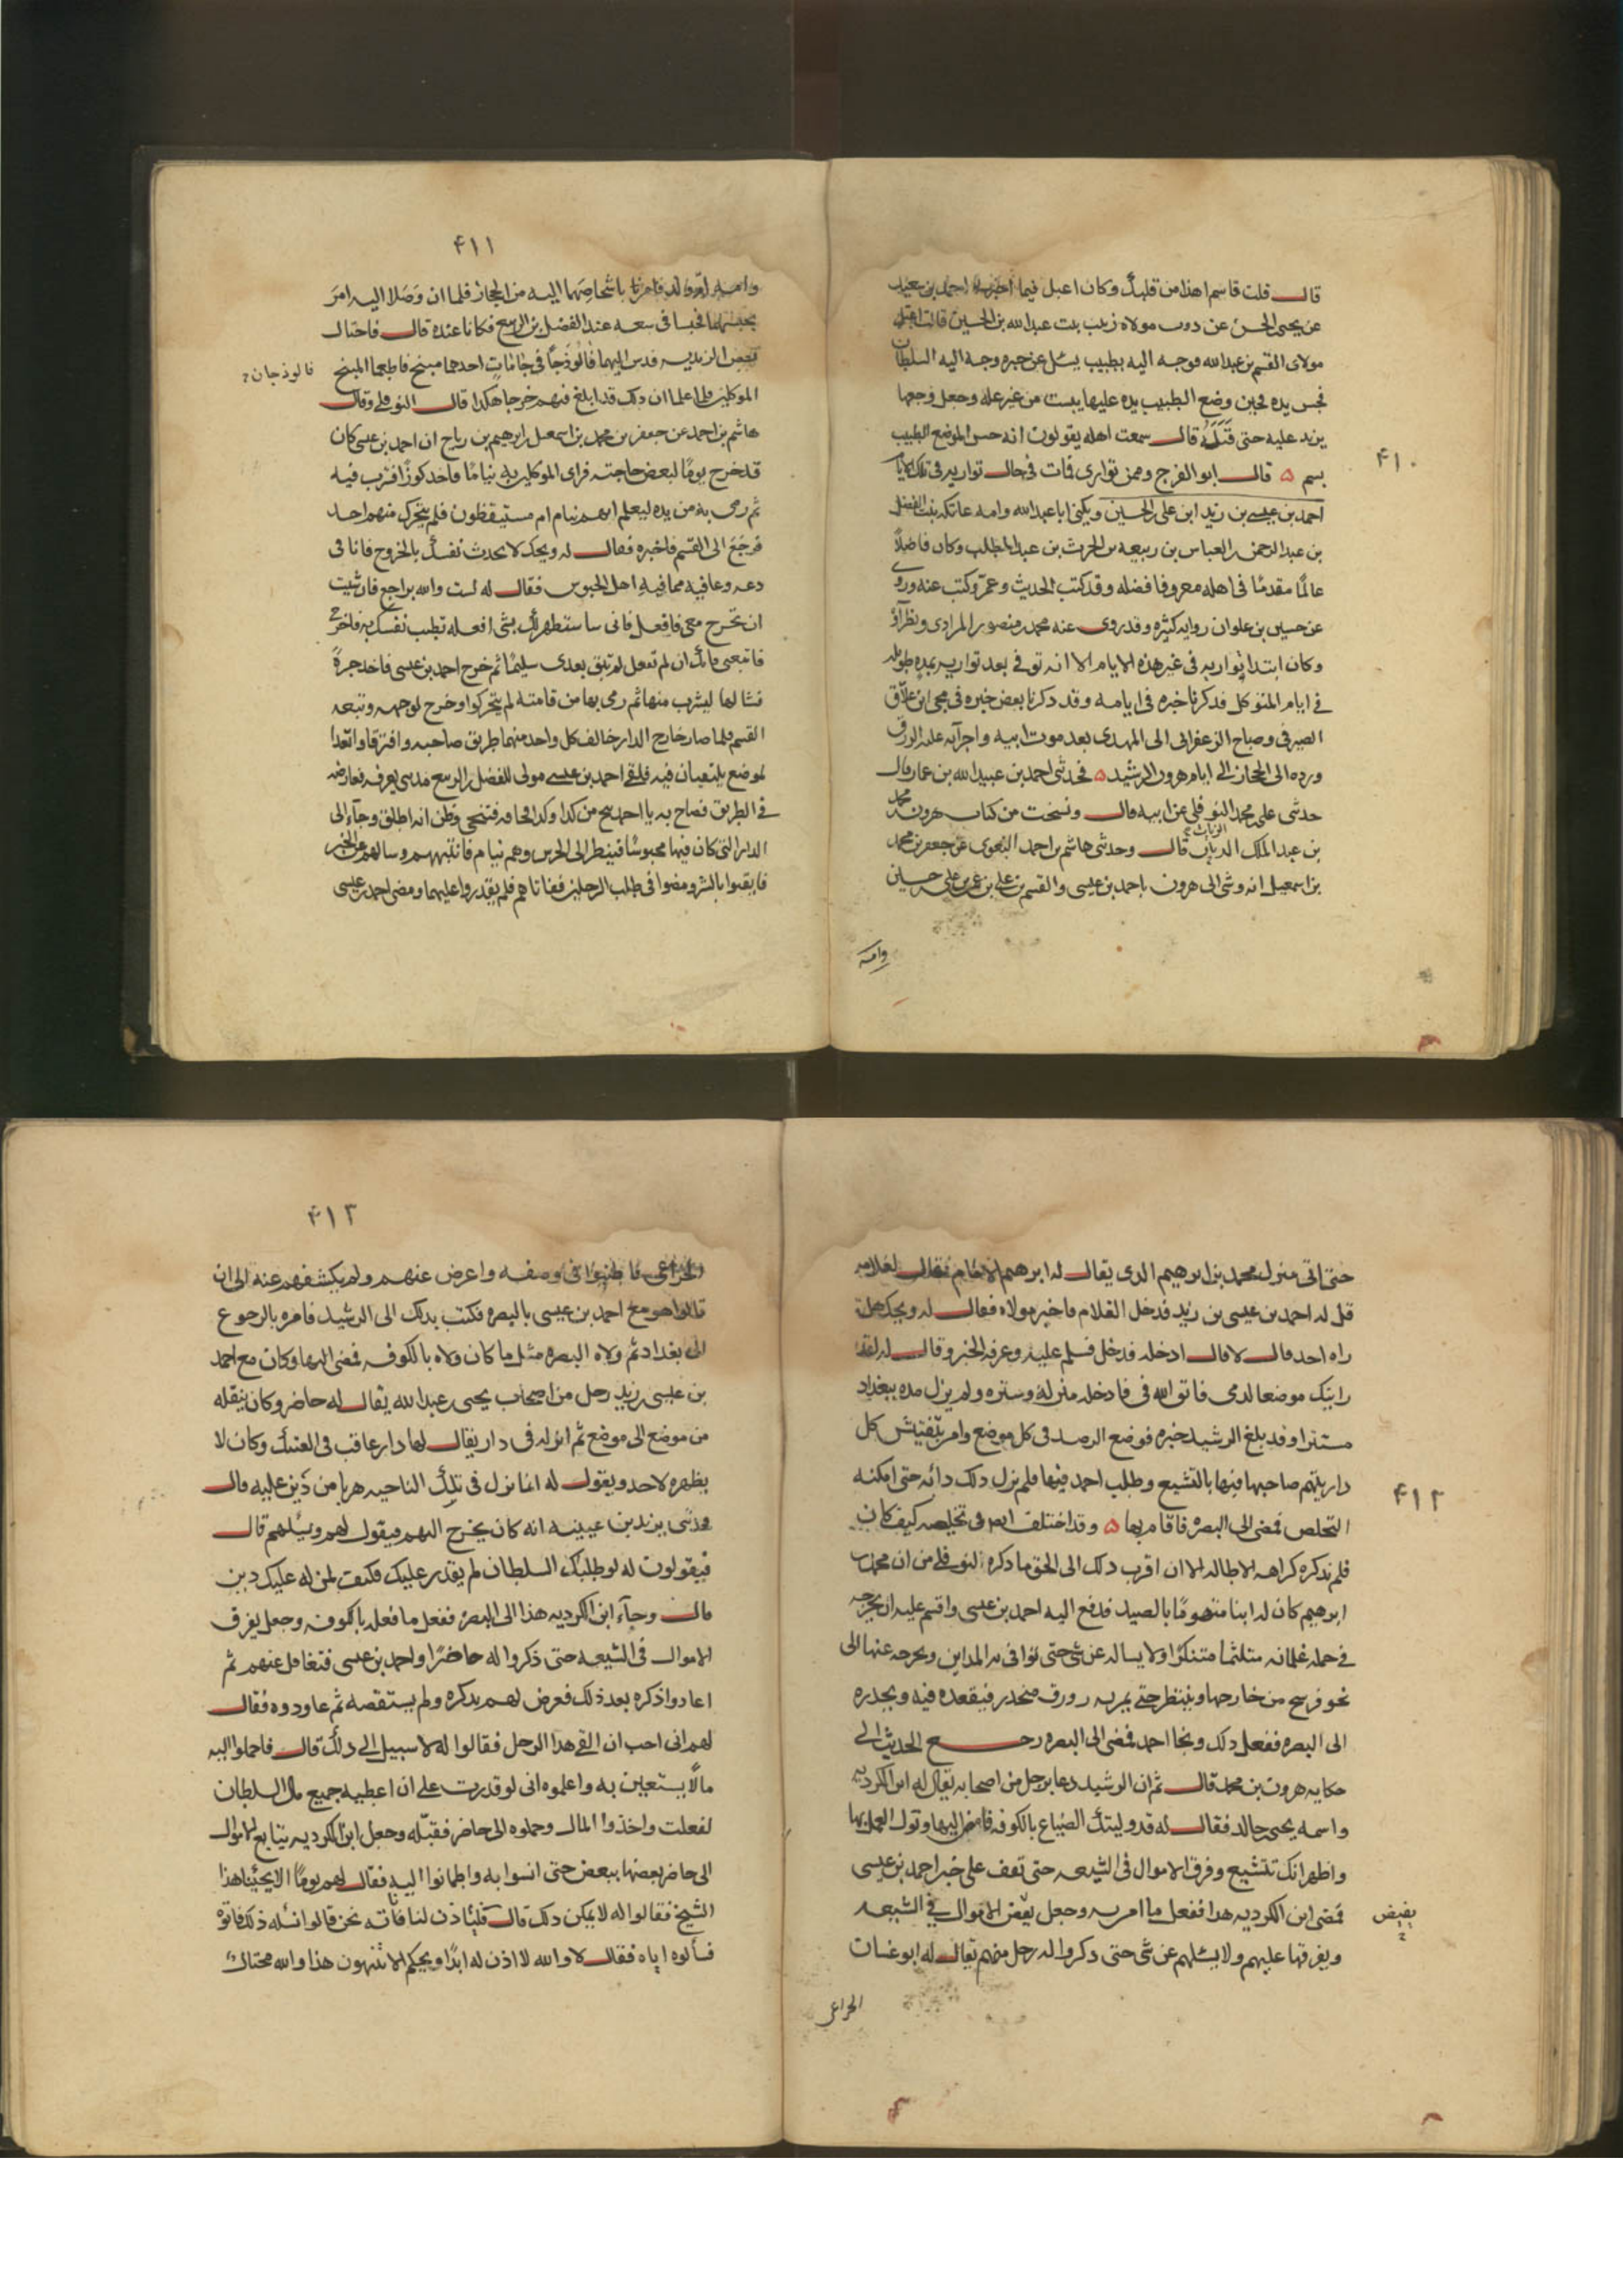 ٤١٠
قال قلت قاسم اهذا من قلبك وكان اعبل فيما اخبرنا احمد بن سعيد
عن يحيى الحسن عن دوب مولاه زينب بنت عبد الله بن الحسين قالت اعتل
مولاى القسم بن عبد الله فوجه اليه بطبيب يسئل عن خبره وجه اليه السلطان
فجس يده فحين وضع الطبيب يده عليها يبست من غير عله وجعل وجعها
يزيد عليه حتى قتله قال سمعت اهله يقولون انه حس الموضع الطبيب
بسم ه قال ابو الفرج وممن توارى فمات فى حال تواريه فى تلك الايام
احمد بن عيسى بن زيد ابن على الحسين ويكنى ابا عبد الله وامه عاتكه بنت الفضل
بن عبد الرحمن بن العباس بن ربيعه بن الحرث بن عبد المطلب وكان فاضلاً
عالماً مقدمًا فى اهله معروفا فضله وقد كتب الحديث وعمّر وكتب عنه وروى
عن حسين بن علوان روايه كثيره وقد روى عنه محمد بن منصور المرادى ونظرآؤ
وكان ابتدا تواريه فى غير هذه الايام الا انه توفى بعد تواريه بمده طويله
فى ايام المتوكل فذكرنا خبره فى ايامه وقد ذكرنا بعض خبره فى مجى ابن علاق
الصيرفى وصباح الزعفرانى الى المهدى بعد موت ابيه واجرآيه عليه الورق
ورده الى الحجاز الى ايام هرون الرشيد ه فحدثنى احمد بن عبيد الله بن عمار قال
حدثنى على محمد النوفلى عن ابيه قال ونسخت من كتاب هرون محمد
بن عبد الملك الزيات قال وحدثنى هاشم بن احمد البغوى عن جعفر بن محمد
بن اسمعيل انه وشى الى هرون باحمد بن عيسى والقسم بن على بن عمر بن على حسين
وامه
٤١١
وامه ام ولد فامر باشخاصهما اليه من الحجاز فلما ان وصلا اليه امر
بحبسهما فحبسا فى سعه عند الفضل بن الربيع فكانا عنده قال فاحتال
بعض الزيديه فدس اليهما فالوذجًا فى جامات احدهما مبنج فاطعما المبنج
فالوذجان؟
الموكلين فلما علما ان ذلك قد ابلغ فيهم خرجا هكذا قال النوفلى وقال
هاشم بن احمد عن جعفر بن محمد بن اسمعيل ابرهيم بن رياح ان احمد بن عيسى كان
قد خرج يومًا لبعض حاجته فراى الموكلين به نيامًا فاخذ كوزًا فشرب فيه
ثم رمى به من يده ليعلم ابهم نيام ام مستيقظون فلم يتحرك منهم احد
فرجع الى القسم فاخبره فقال له ويحك لا يحدث نفسك بالخروج فانا فى
دعه وعافيه مما فيه اهل الحبوس فقال له لست والله براجع فان شئت
ان تخرج معى فافعل فانى ساستظهر لك بشى افعله تطيب نفسك به فاخرج
فاتبعنى فانك ان لم تفعل لم تبق بعدى سليمًا ثم خرج احمد بن عيسى فاخذ جرةً
فشالها ليشرب منها ثم رمى بها من قامته لم يتحركوا وخرج لوجهه وتبعه
القسم فلما صار خارج الدار خالف كل واحد منهما طريق صاحبه وافترقا واتعدا
لموضع يلتقيان فيه فلقى احمد بن عيسى مولى للفضل بن الربيع مدنى يعرفه فعارضه
فى الطريق فصاح به يا احمد تنح من كذا وكذا فتنحى وظن انه اطلق وجآء الى
الدار التى كان فيها محبوسًا فينظر الى الحرس وهم نيام فانبههم وسالهم عن الخبر
فايقنوا بالشر ومضوا فى طلب الرجلين ففاتاهم فلم يقدروا عليهما ومضى احمد بن عيسى
٤١٢
حتى اتى منزل محمد بن ابرهيم الذى يقال له ابرهيم الامام فقال لغلامه
قل له احمد بن عيسى بن زيد فدخل الغلام فاخبر مولاه فقال له ويحك هل
راه احد قال لا قال ادخله فدخل فسلم عليه وعرفه الخبر وقال له لقد
رايتك موضعا لدمى فاتق الله فى فادخله منزله وستره ولم يزل مده ببغداد
مستترا وقد بلغ الرشيد خبره فوضع الرصد فى كل موضع وامر بتفتيش كل
دار يتهم صاحبها فيها بالتشيع وطلب احمد فيها فلم يزل ذلك دائه حتى امكنه
التخلص فمضى الى البصره فاقام بها ه وقد اختلف ايضا فى تخلصه كيف كان
فلم نذكره كراهه الاطاله الا ان اقرب ذلك الى الحق ما ذكره النوفلى من ان محمد بن
ابرهيم كان له ابنا منهومًا بالصيد فدفع اليه احمد بن عيسى واقسم عليه ان يخرجه
فى جمله غلمانه متلثما متنكرًا ولا يساله عن شى حتى توافى به المداين ويخرجه عنها الى
نحو فرسخ من خارجها وينتظر حتى يمر به زورق منحدر فيقعده فيه ويحدره
الى البصره ففعل ذلك ونجا احمد فمضى الى البصره رجع الحديث الى
حكايه هرون بن محمد قال ثم ان الرشيد دعا برجل من اصحابه يقال له ابن الكرديه
واسمه يحيى خالد فقال له قد وليتك الضياع بالكوفه فامض اليها وتول العمل بها
واظهر انك تتشيع وفرق الاموال فى الشيعه حتى تقف على خبر احمد بن عيسى
فمضى ابن الكرديه هذا ففعل ما امر به وجعل يفيض الاموال فى الشيعه
يفيض
ويفرقها عليهم ولا يسئلهم عن شى حتى ذكروا له رجل منهم يقال له ابو غسان
الخزاعى
٤١٣
الخزاعى فاطنبوا فى وصفه واعرض عنهم ولم يكشفهم عنه الى ان
قالوا هو مع احمد بن عيسى بالبصره فكتب بذلك الى الرشيد فامره بالرجوع
الى بغداد ثم ولاه البصره مثل ما كان ولاه بالكوفه فمضى اليها وكان مع احمد
بن عيسى زيد رجل من اصحاب يحيى عبد الله يقال له حاضر وكان ينقله
من موضع الى موضع ثم انزله فى دار يقال لها دار عاقب فى العتيك وكان لا
يظهره لاحد ويقول له انما نزل فى تلك الناحيه هربا من دَين عليه قال
فحدثنى يزيد بن عيينه انه كان يخرج اليهم فيقول لهم ويسئلهم قال
فيقولون له لو طلبك السلطان لم يقدر عليك فكيف لمن له عليك دين
قال وجآء ابن الكرديه هذا الى البصره ففعل ما فعله بالكوفه وجعل يفرق
الاموال فى الشيعه حتى ذكروا له حاضرًا واحمد بن عيسى فتغافل عنهم ثم
اعادوا ذكره بعد ذلك فعرض لهم بذكره ولم يستقصه ثم عاودوه فقال
لهم انى احب ان القى هذا الرجل فقالوا له لا سبيل الى ذلك قال فاحملوا اليه
مالًا يستعين به واعلموه انى لو قدرت على ان اعطيه جميع مال السلطان
لفعلت واخذوا المال وحملوه الى حاضر فقبّله وجعل ابن الكرديه يتابع الاموال
الى حاضر بعضها ببعض حتى انسوا به واطمانوا اليه فقال لهم يومًا الا يجيئنا هذا
الشيخ فقالوا له لا يمكن ذلك قال فليأذن لنا فاته نحن قالوا نسئله ذلك فاتوه
فسألوه اياه فقال لا والله لا اذن له ابدًا ويحكم الا تنتهون هذا والله محتال